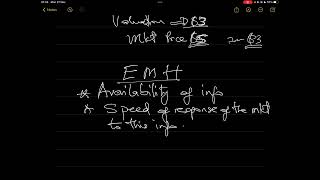 Valuation → £3
Mkt Price £5 → £3
EMH
* Availability of info
* Speed of response of the mkt
to this info.